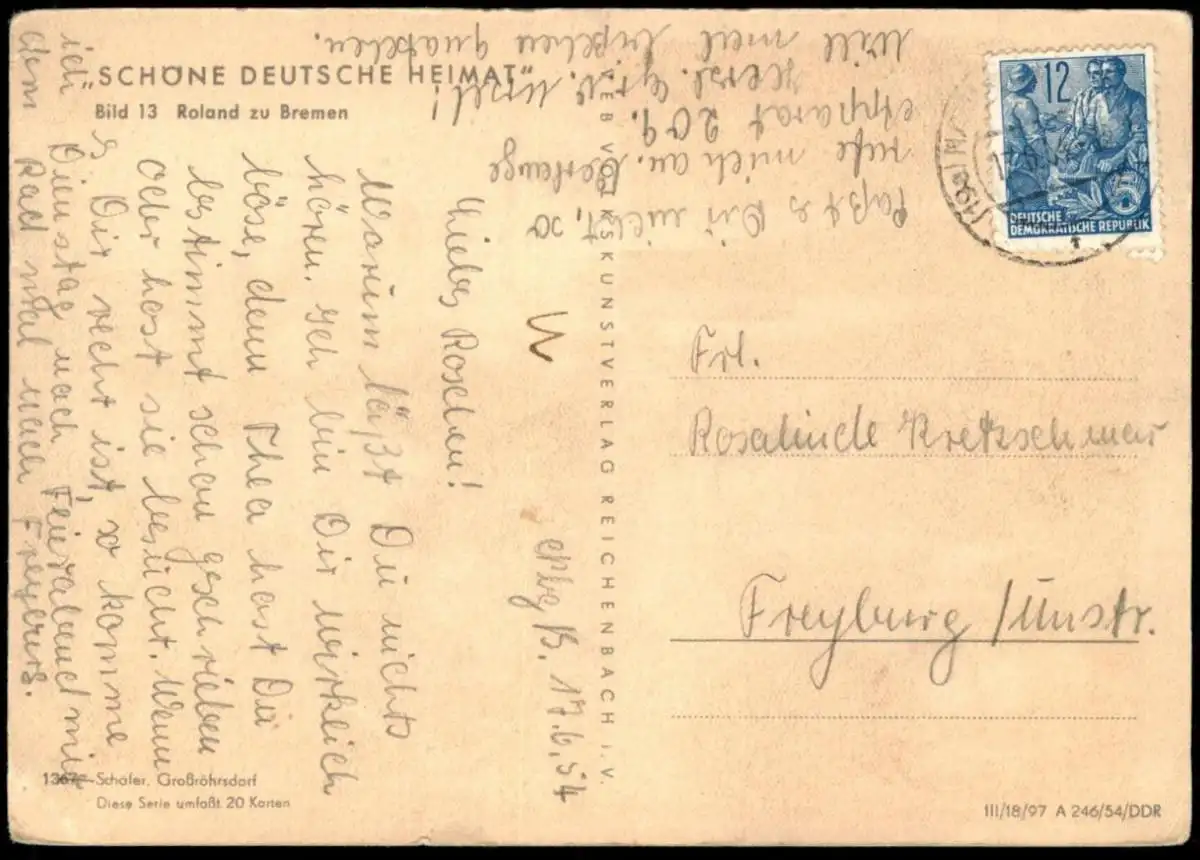 „SCHÖNE DEUTSCHE HEIMAT“
Bild 13 Roland zu Bremen
B. 17.6.54
Liebes Röschen!
Warum läßt Du nichts
hören. Ich bin Dir wirklich
böse, denn Thea hast Du
bestimmt schon geschrieben
oder hast sie besucht. Wenn
es Dir recht ist, so komme
ich Dienstag nach Feierabend mir
dem Rad mal nach
Paßt es Dir nicht, so
rufe mich an. Verlange
Apparat 209.
Herzl. Grüße
Will mal bißchen quatschen.
VOLKSKUNSTVERLAG REICHENBACH I. V.
12
DEUTSCHE
DEMOKRATISCHE REPUBLIK
Frl.
Rosalinde Kretzschmar
Freyburg /Unstr.
1367 Schäfer, Großröhrsdorf
Diese Serie umfaßt 20 Karten
III/18/97 A 246/54/DDR